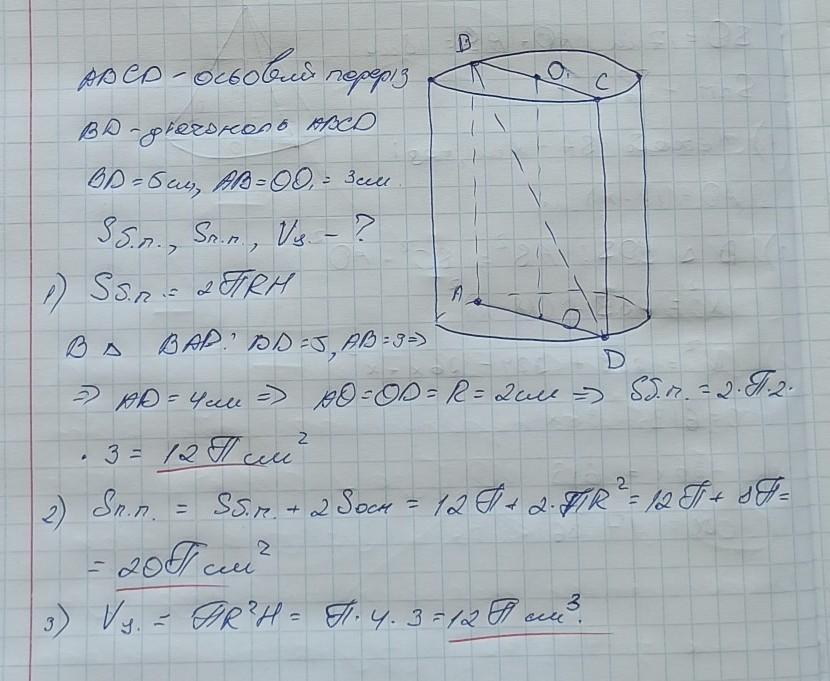 ABCD - осьовий переріз
BD - діагональ ABCD
BD = 5 см, AB = OO₁ = 3 см
Sб.п., Sп.п., Vц. - ?
1) Sб.п. = 2πRH
В △ BAD: BD = 5, AB = 3 =>
=> AD = 4 см => AO = OD = R = 2 см => Sб.п. = 2·π·2·
· 3 = 12π см²
2) Sп.п. = Sб.п. + 2Sосн = 12π + 2·πR² = 12π + 8π =
= 20π см²
3) Vц. = πR²H = π·4·3 = 12π см³.
B
O₁
C
A
O
D